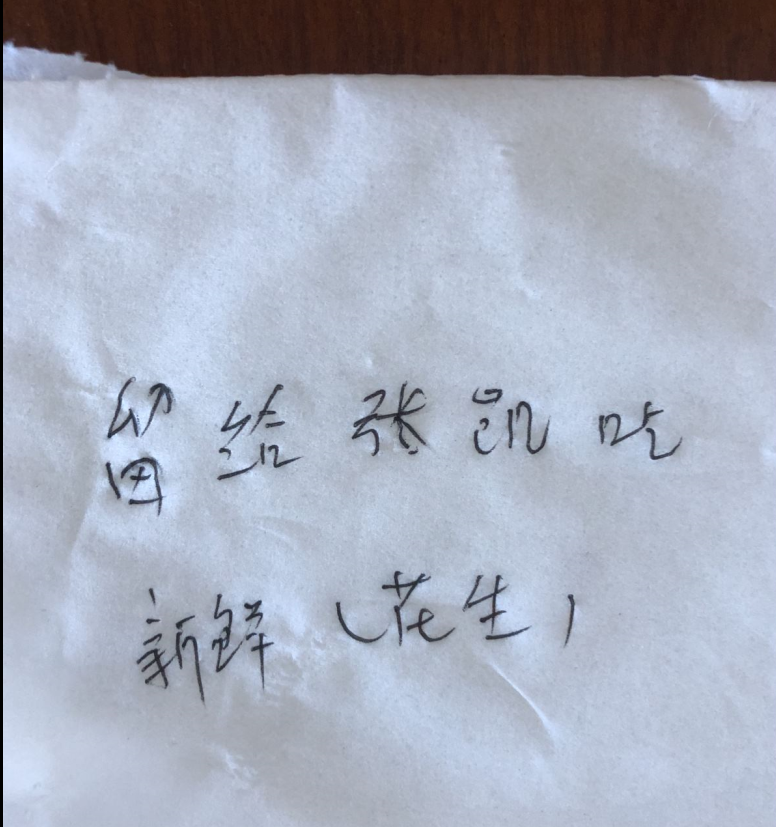 留给张凯吃
新鲜（花生）